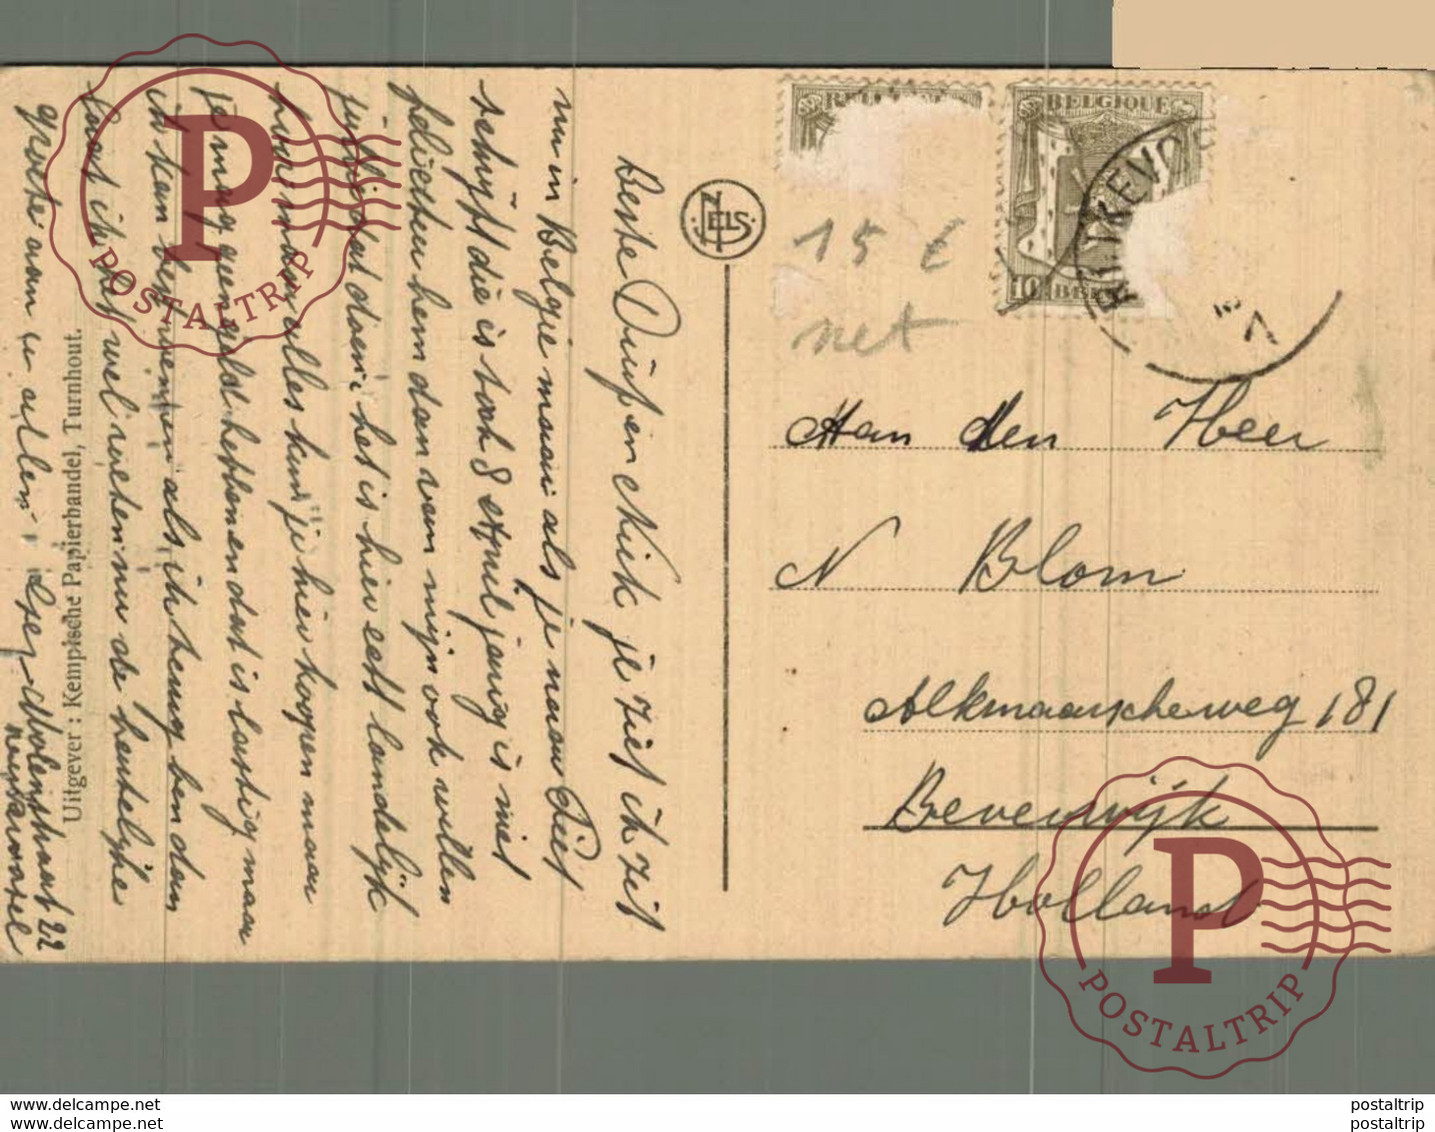 Beste Duif en Niek je ziet ik zit
nu in Belgie maar als je nou Piet
schrijft die is toch 8 April jarig is niet
feliciteeren hem dan van mijn ook willen
jullie dat doen: het is hier echt landelijk
hoor maar alles kun je hier koopen maar
je mag geen geld hebben en dat is lastig maar
ik kan benemen als ik terug ben dan
laat ik het wel weten nu de hartelijke
groeten aan u allen
Molenstraat 22
Uitgever : Kempische Papierhandel, Turnhout.
NELS
BELGIQUE
BELGIQUE
10
BE
15 €
net
Aan den Heer
N Blom
Alkmaarscheweg 181
Beverwijk
Holland
P
POSTALTRIP
P
POSTALTRIP
www.postaltrip.net
www.postaltrip.net
postaltrip
postaltrip